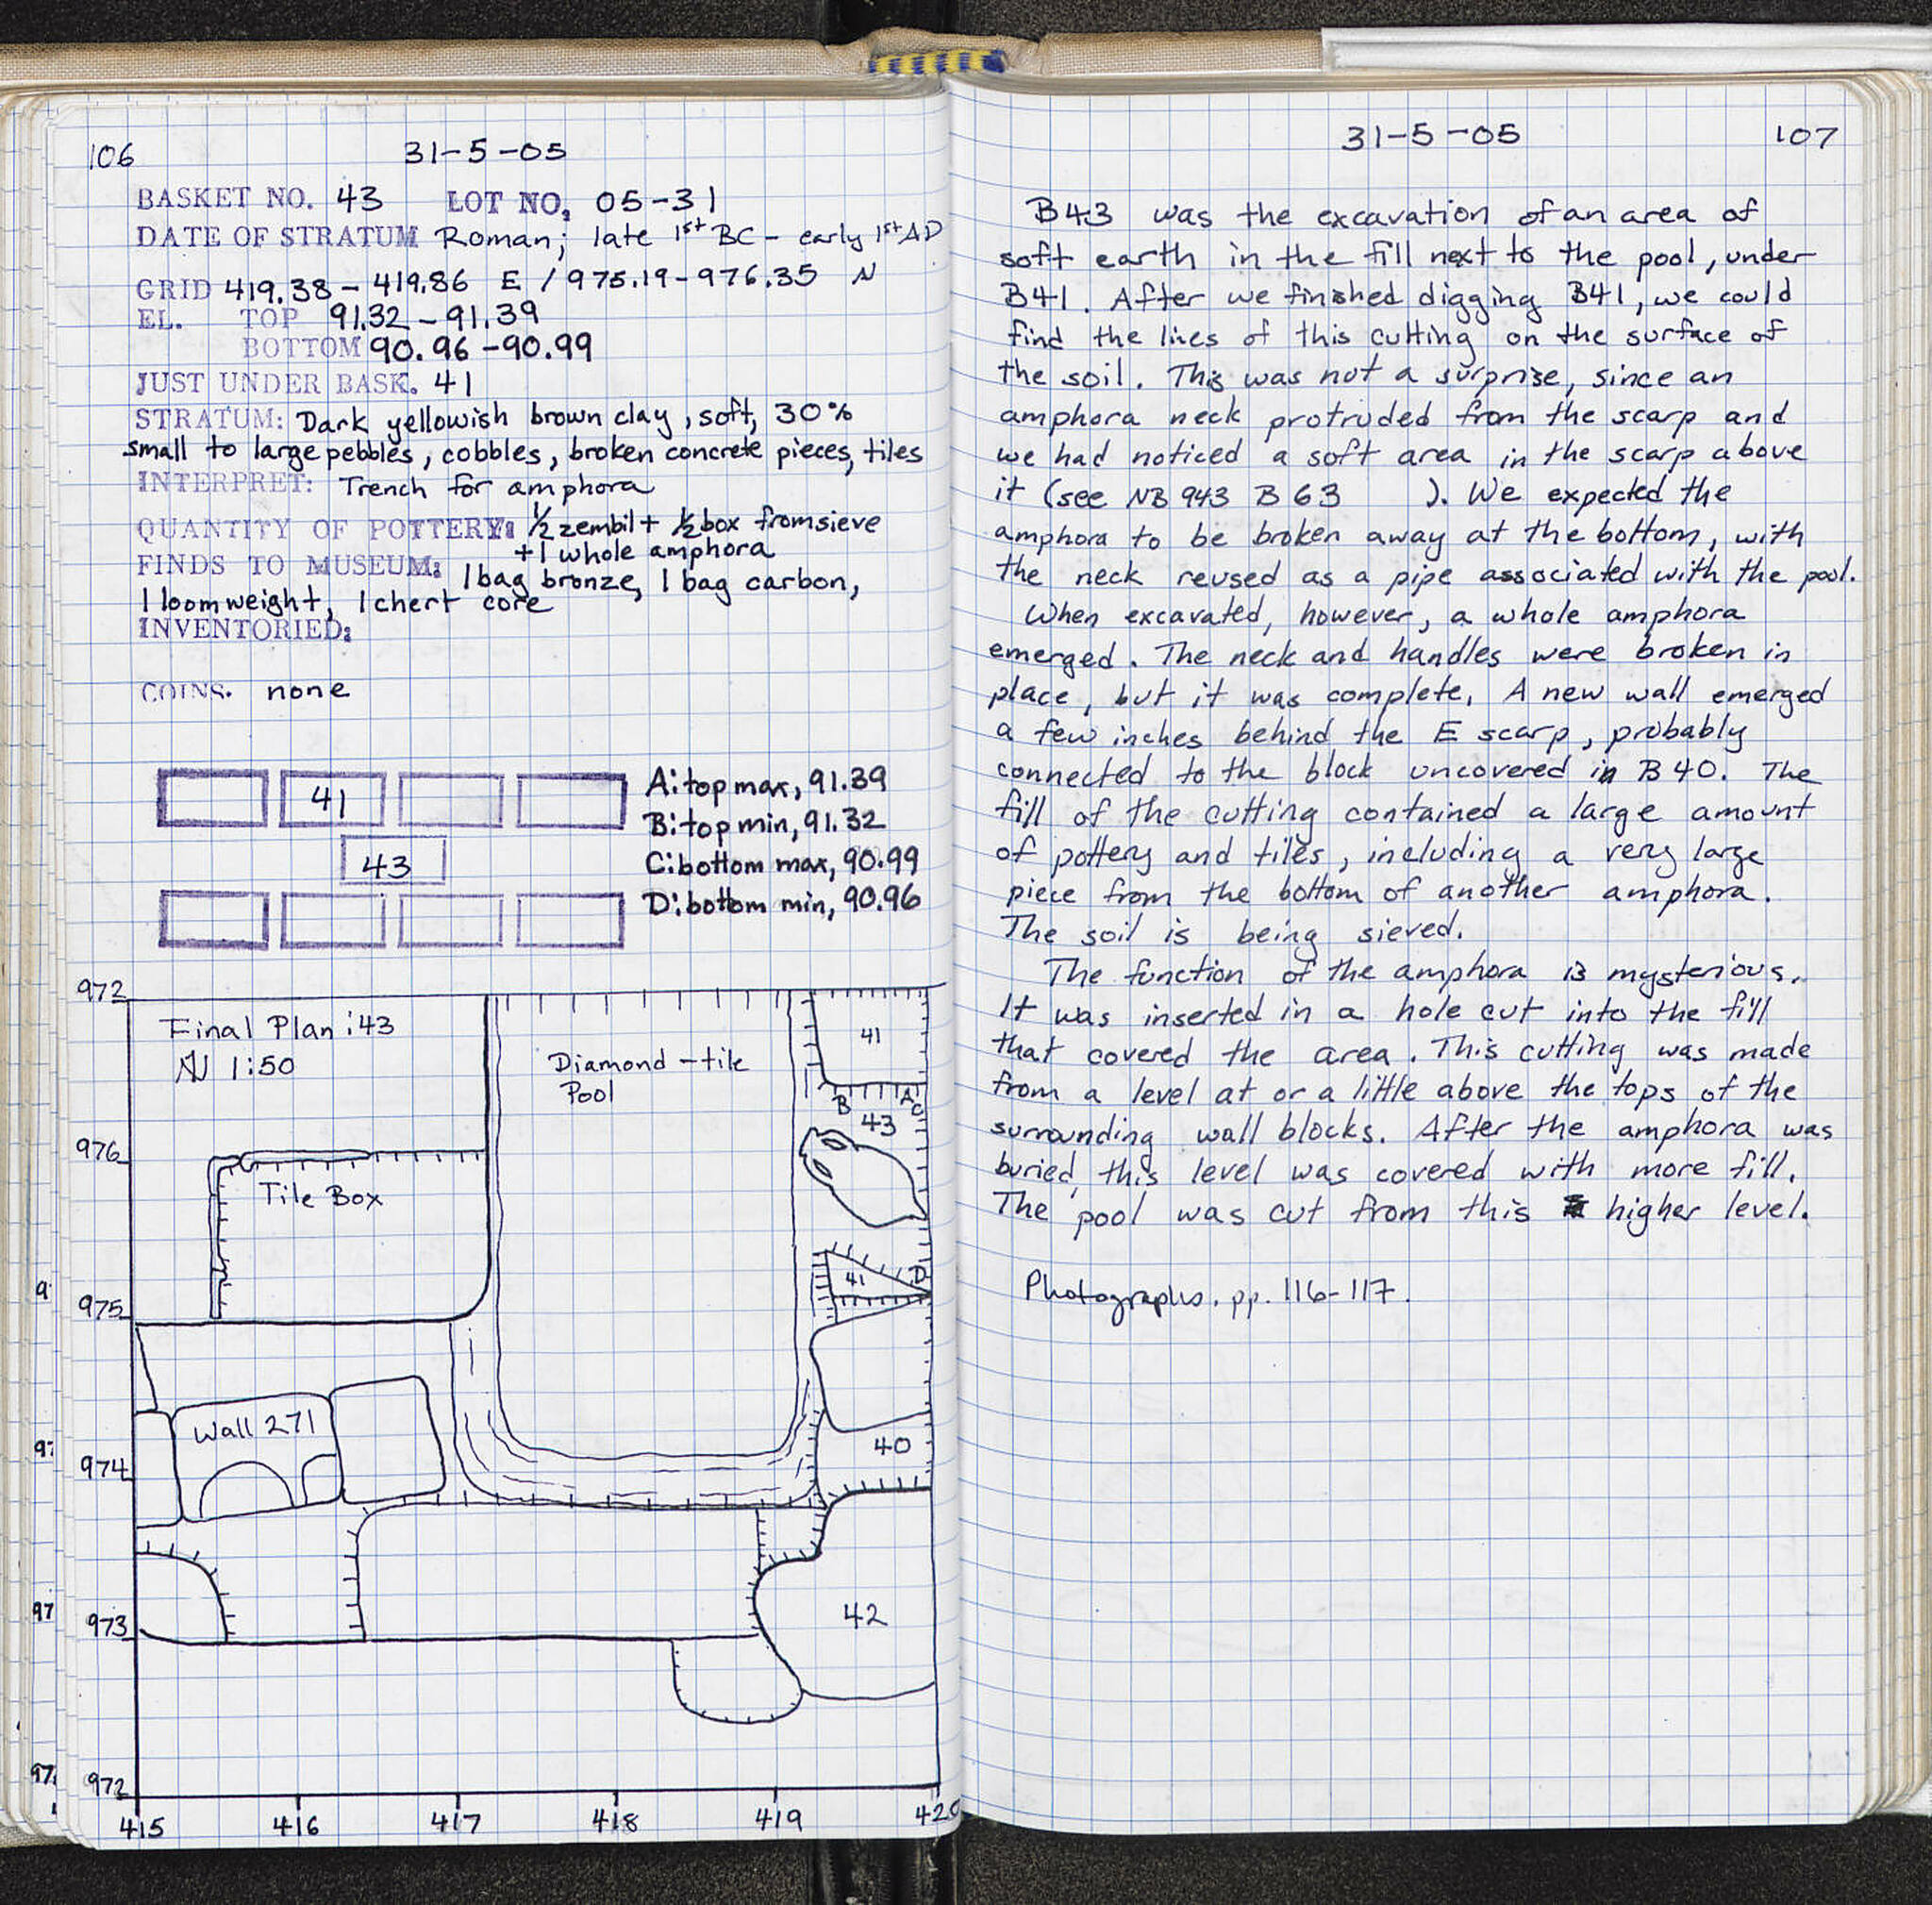 106
31-5-05
BASKET NO. 43 LOT NO. 05-31
DATE OF STRATUM Roman; late 1st BC - early 1st AD
GRID 419.38 - 419.86 E / 975.19-976.35 N
EL. TOP 91.32 - 91.39
BOTTOM 90.96 - 90.99
JUST UNDER BASK. 41
STRATUM: Dark yellowish brown clay, soft, 30%
small to large pebbles, cobbles, broken concrete pieces, tiles
INTERPRET: Trench for amphora
QUANTITY OF POTTERY: 1/2 zembil + 1/2 box from sieve
+ 1 whole amphora
FINDS TO MUSEUM: 1 bag bronze, 1 bag carbon,
1 loomweight, 1 chert core
INVENTORIED:
COINS. none
41
43
A: top max, 91.39
B: top min, 91.32
C: bottom max, 90.99
D: bottom min, 90.96
972
Final Plan: 43
N 1:50
Diamond-tile
Pool
41
B A C
43
976
Tile Box
41 D
975
Wall 271
40
974
42
973
972
415 416 417 418 419 420
31-5-05
107
B43 was the excavation of an area of
soft earth in the fill next to the pool, under
B41. After we finished digging B41, we could
find the lines of this cutting on the surface of
the soil. This was not a surprise, since an
amphora neck protruded from the scarp and
we had noticed a soft area in the scarp above
it (see NB 943 B 63 ). We expected the
amphora to be broken away at the bottom, with
the neck reused as a pipe associated with the pool.
When excavated, however, a whole amphora
emerged. The neck and handles were broken in
place, but it was complete. A new wall emerged
a few inches behind the E scarp, probably
connected to the block uncovered in B40. The
fill of the cutting contained a large amount
of pottery and tiles, including a very large
piece from the bottom of another amphora.
The soil is being sieved.
The function of the amphora is mysterious.
It was inserted in a hole cut into the fill
that covered the area. This cutting was made
from a level at or a little above the tops of the
surrounding wall blocks. After the amphora was
buried, this level was covered with more fill.
The pool was cut from this higher level.
Photographs. pp. 116-117.